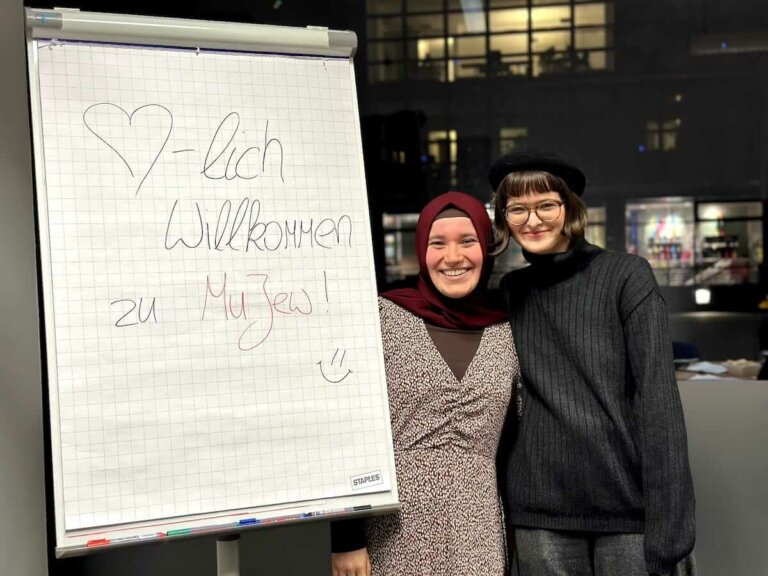 ♡-lich
Willkommen
zu MuJew!
STAPLES